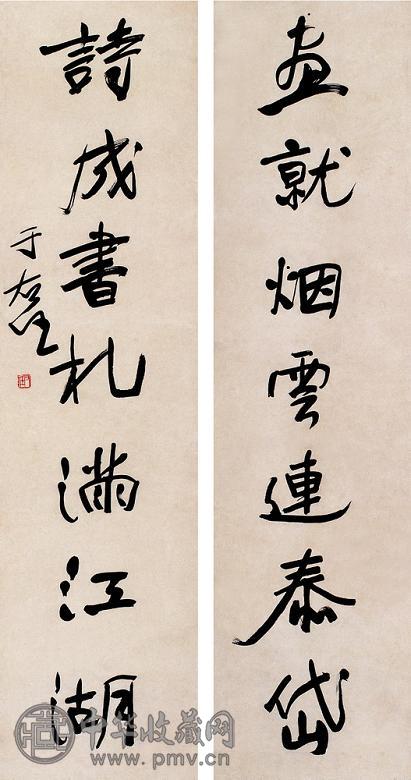 画就烟雲連泰岱
詩成書札滿江湖
于右任
中华收藏网
www.pmv.cn